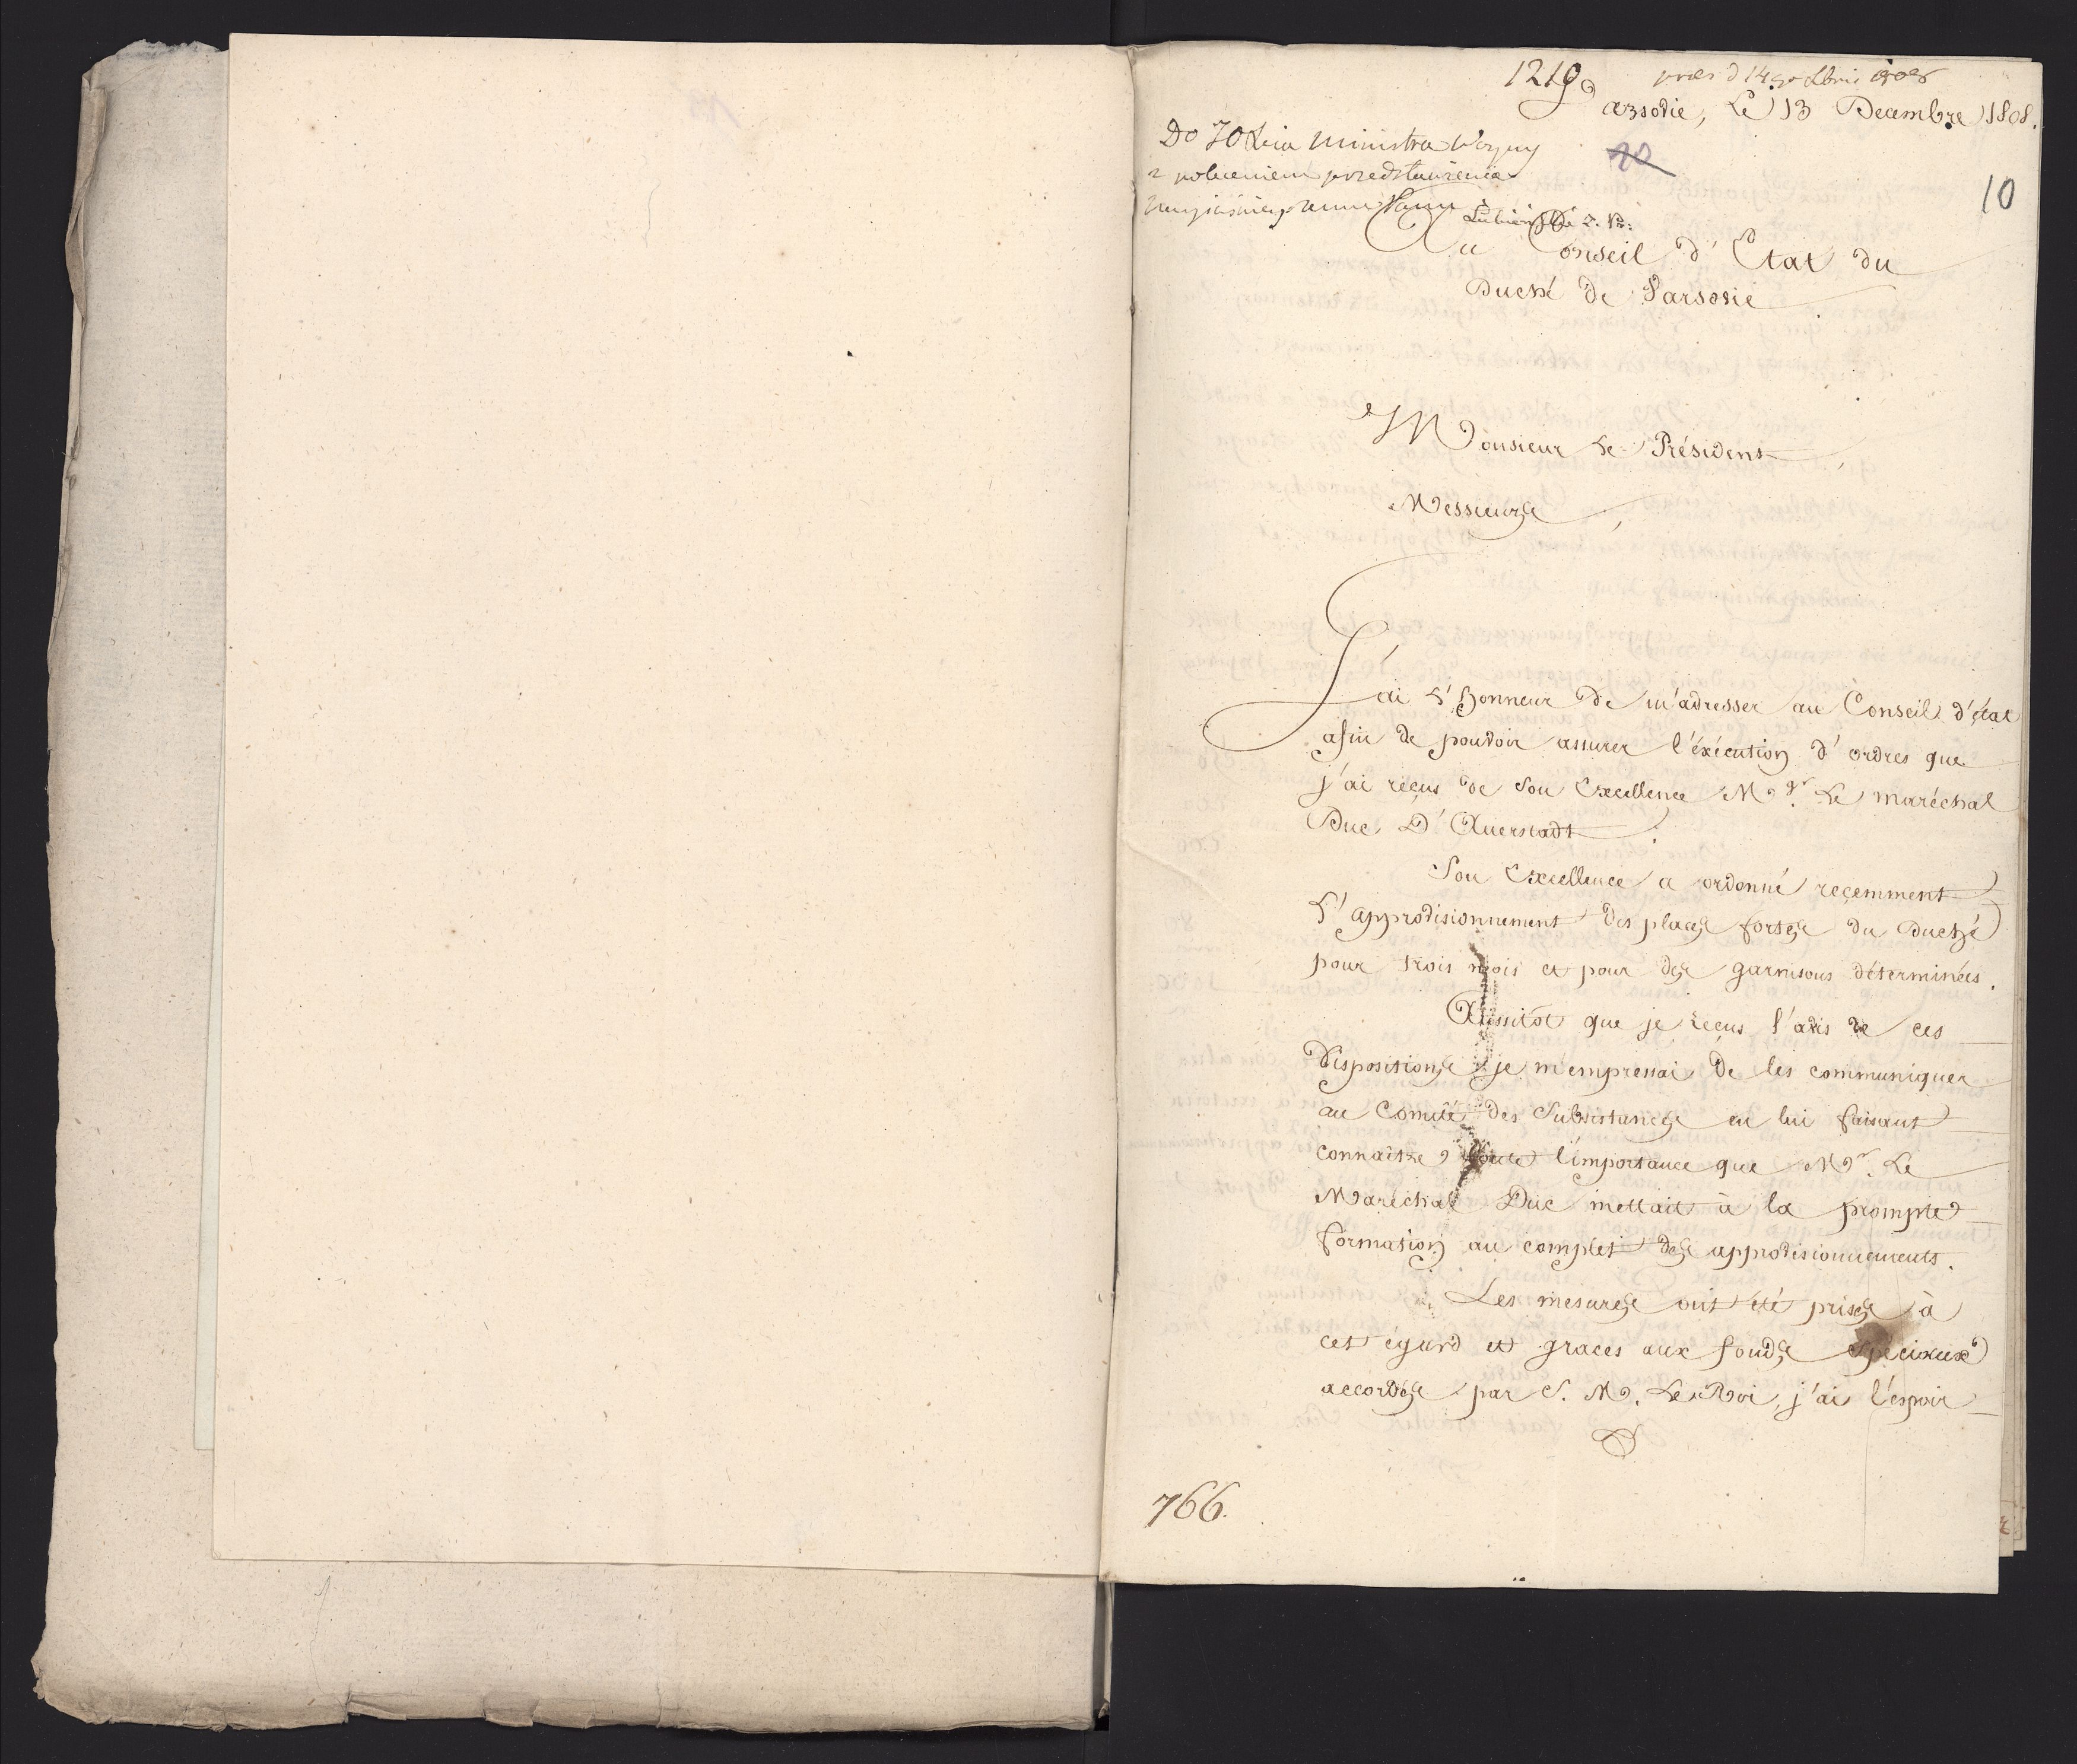 1219
præs d 14 Xbris 1808
Varsovie, Le 13 Decembre 1808.
Do JO Xcia Ministra Woyny
z poleceniem przedstawienia
Lubieński
20
10
Au Conseil d'Etat du
Duché de Varsovie
Monsieur Le Président,
Messieurs,
J'ai L'honneur de m'adresser au Conseil d'état
afin de pouvoir assurer l'éxécution d'ordres que
j'ai reçus de Son Excellence Mgr. Le maréchal
Duc D'Auerstadt.
Son Excellence a ordonné reçemment
L'approvisionnement des places fortes du Duché
pour trois mois et pour des garnisons déterminées.
Aussitôt que je reçus l'avis de ces
Dispositions je m'empressai de les communiquer
au Comité des Subsistances en lui faisant
connaitre toute l'importance que Mr. Le
Maréchal Duc mettait à la prompte
formation au complet des approvisionnements.
Les mesures ont été prises à
cet égard et graces aux fonds speciaux
accordés par S. M. Le Roi, j'ai l'espoir
766.